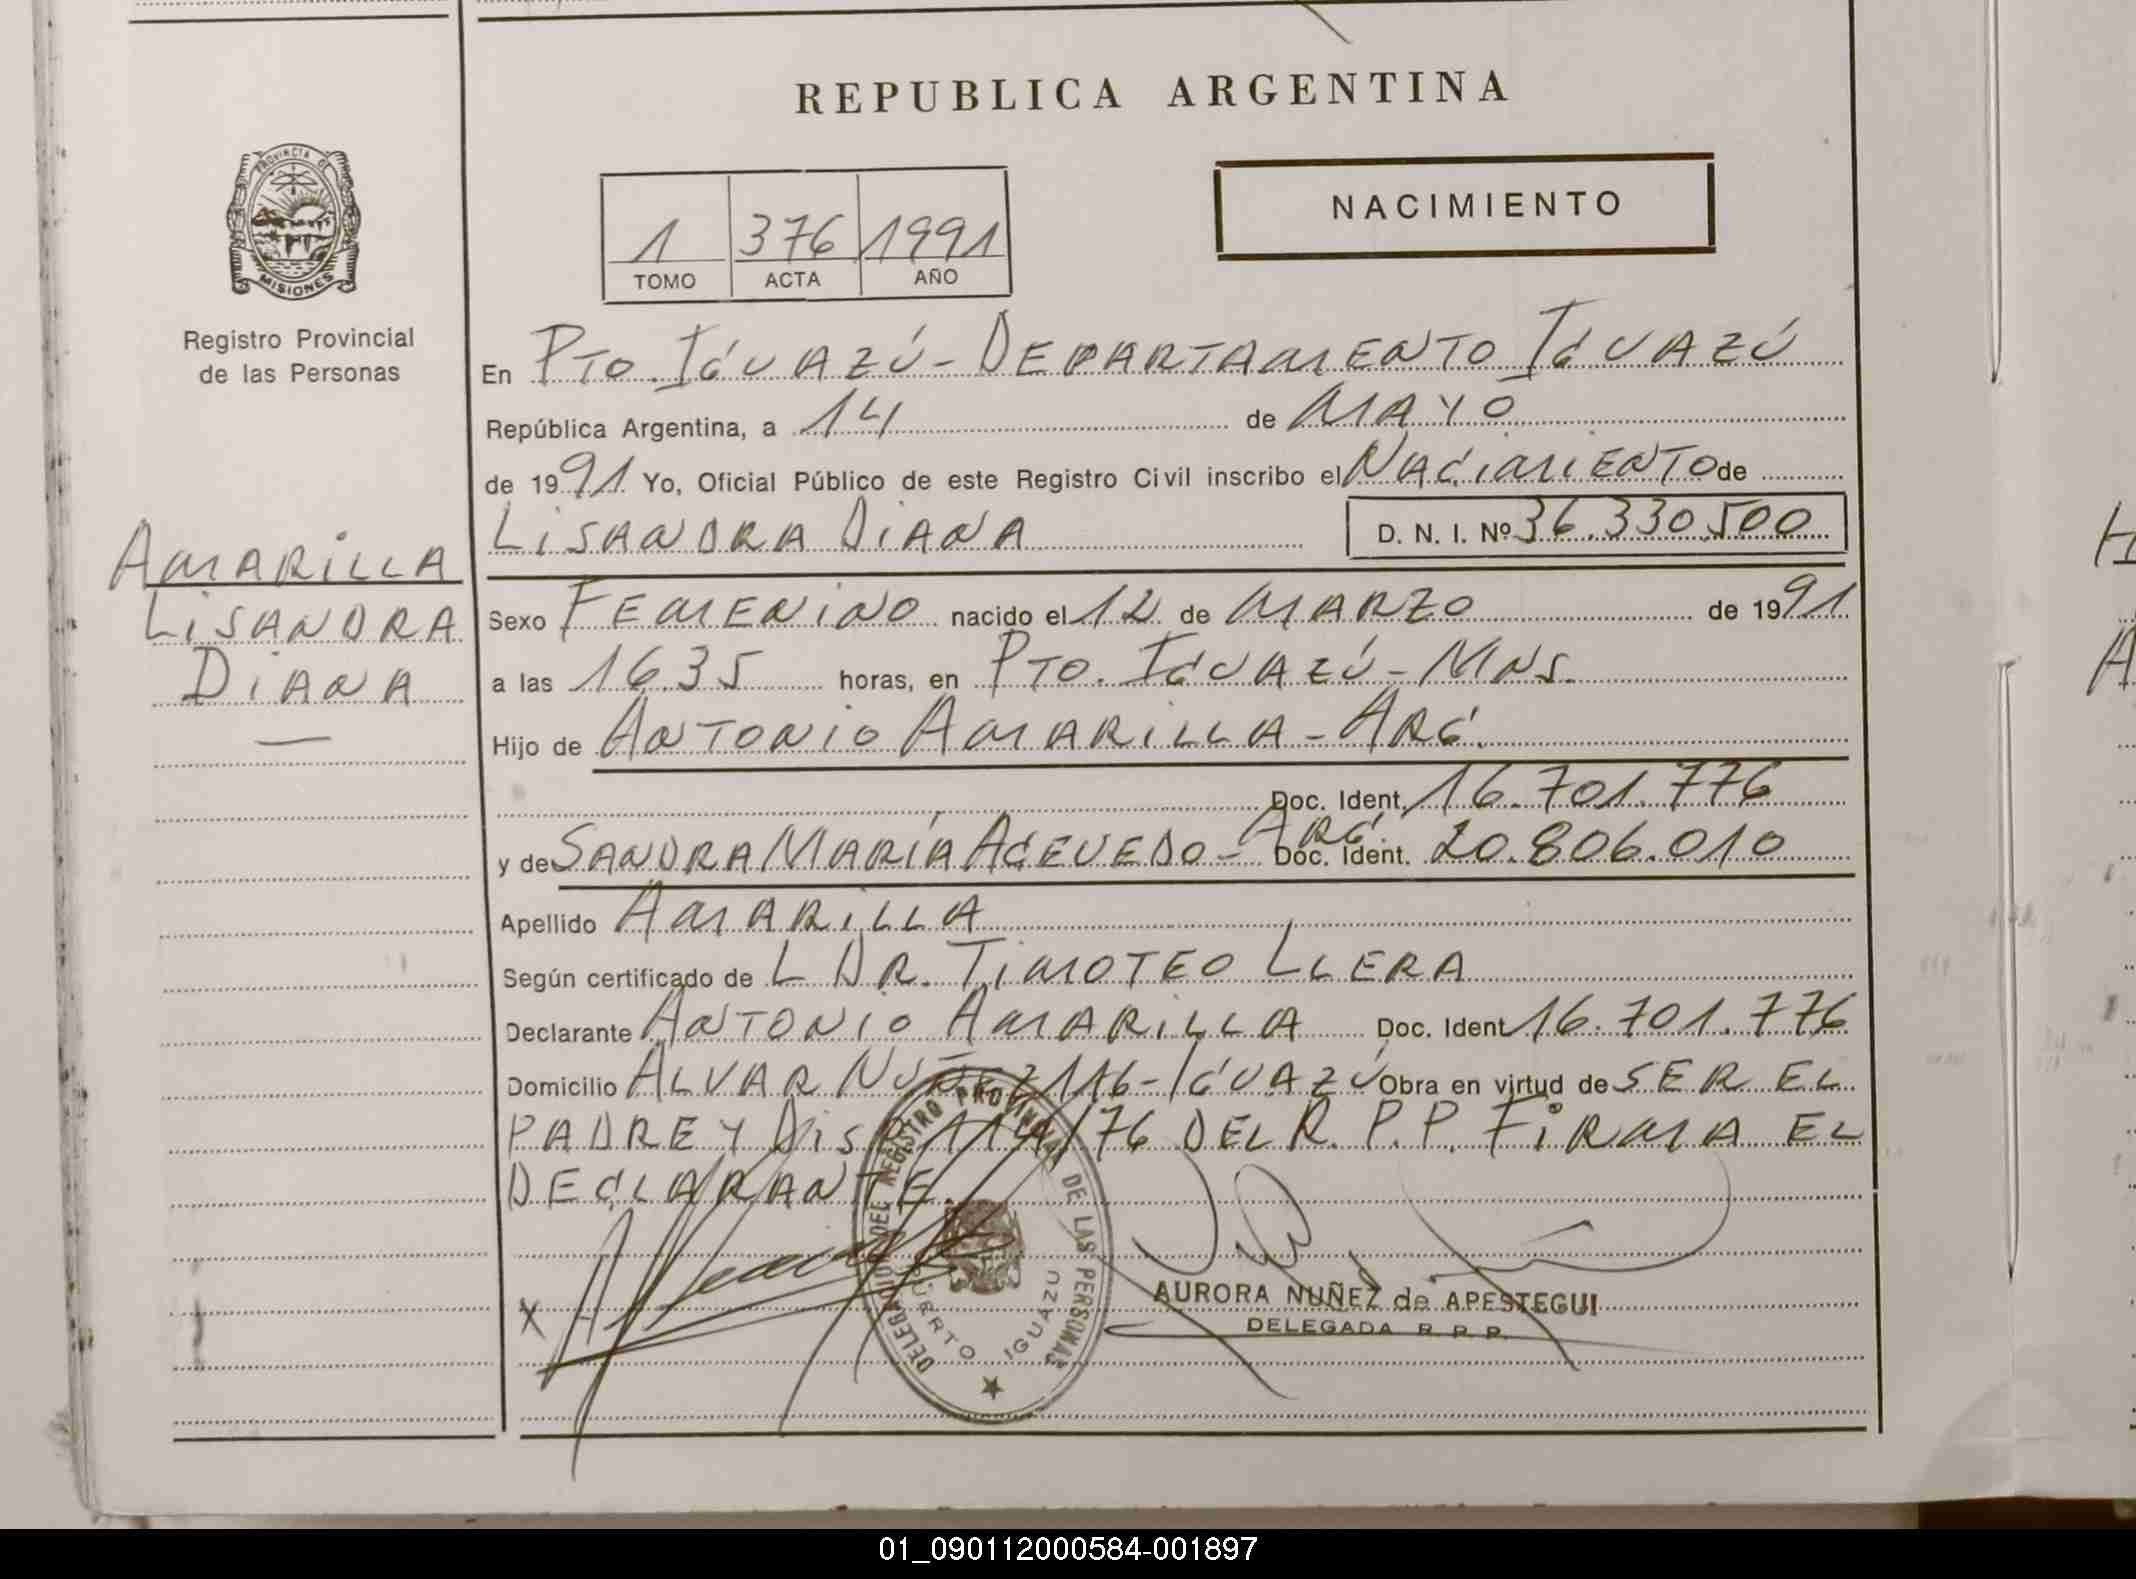 REPUBLICA ARGENTINA
PROVINCIA DE
MISIONES
NACIMIENTO
1 376 1991
TOMO ACTA AÑO
Registro Provincial
de las Personas
En Pto. Iguazú - Departamento Iguazú
República Argentina, a 14 de Mayo
de 1991 Yo, Oficial Público de este Registro Civil inscribo el Nacimiento de
Lisandra Diana D. N. I. Nº 36.330.500
Amarilla
Lisandra
Diana
Sexo Femenino nacido el 12 de Marzo de 1991
a las 16.35 horas, en Pto. Iguazú - Mns.
Hijo de Antonio Amarilla - Arg.
Doc. Ident. 16.701.776
y de Sandra María Acevedo - Arg. Doc. Ident. 20.806.010
Apellido Amarilla
Según certificado de L Dr. Timoteo Llera
Declarante Antonio Amarilla Doc. Ident 16.701.776
Domicilio Alvar Nuñez 116 - Iguazú Obra en virtud de ser el
padre y Disp. 114/76 del R.P.P. Firma el
declarante.
X
DELEGACION DEL REGISTRO PROVINCIAL DE LAS PERSONAS
PUERTO IGUAZU
AURORA NUÑEZ de APESTEGUI
DELEGADA R. P. P.
01_090112000584-001897